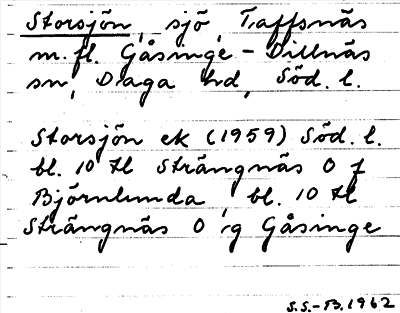 Storsjön, sjö, Taffsnäs
m.fl. Gåsinge-Dillnäs
sn, Daga hd, Söd. l.
Storsjön ek (1959) Söd. l.
bl. 10 tl Strängnäs O f
Björnlunda, bl. 10 tl
Strängnäs O ig Gåsinge
S.S.-B. 1962